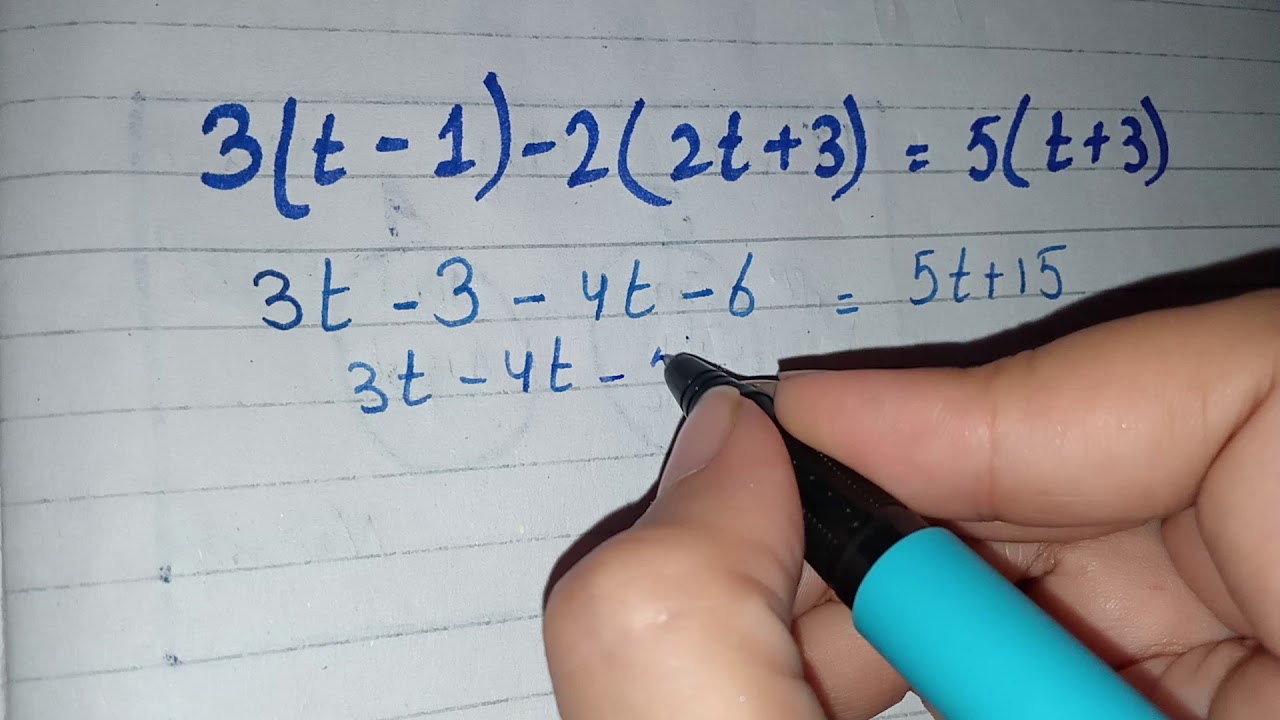 3(t - 1) - 2(2t + 3) = 5(t + 3)
3t - 3 - 4t - 6 = 5t + 15
3t - 4t -